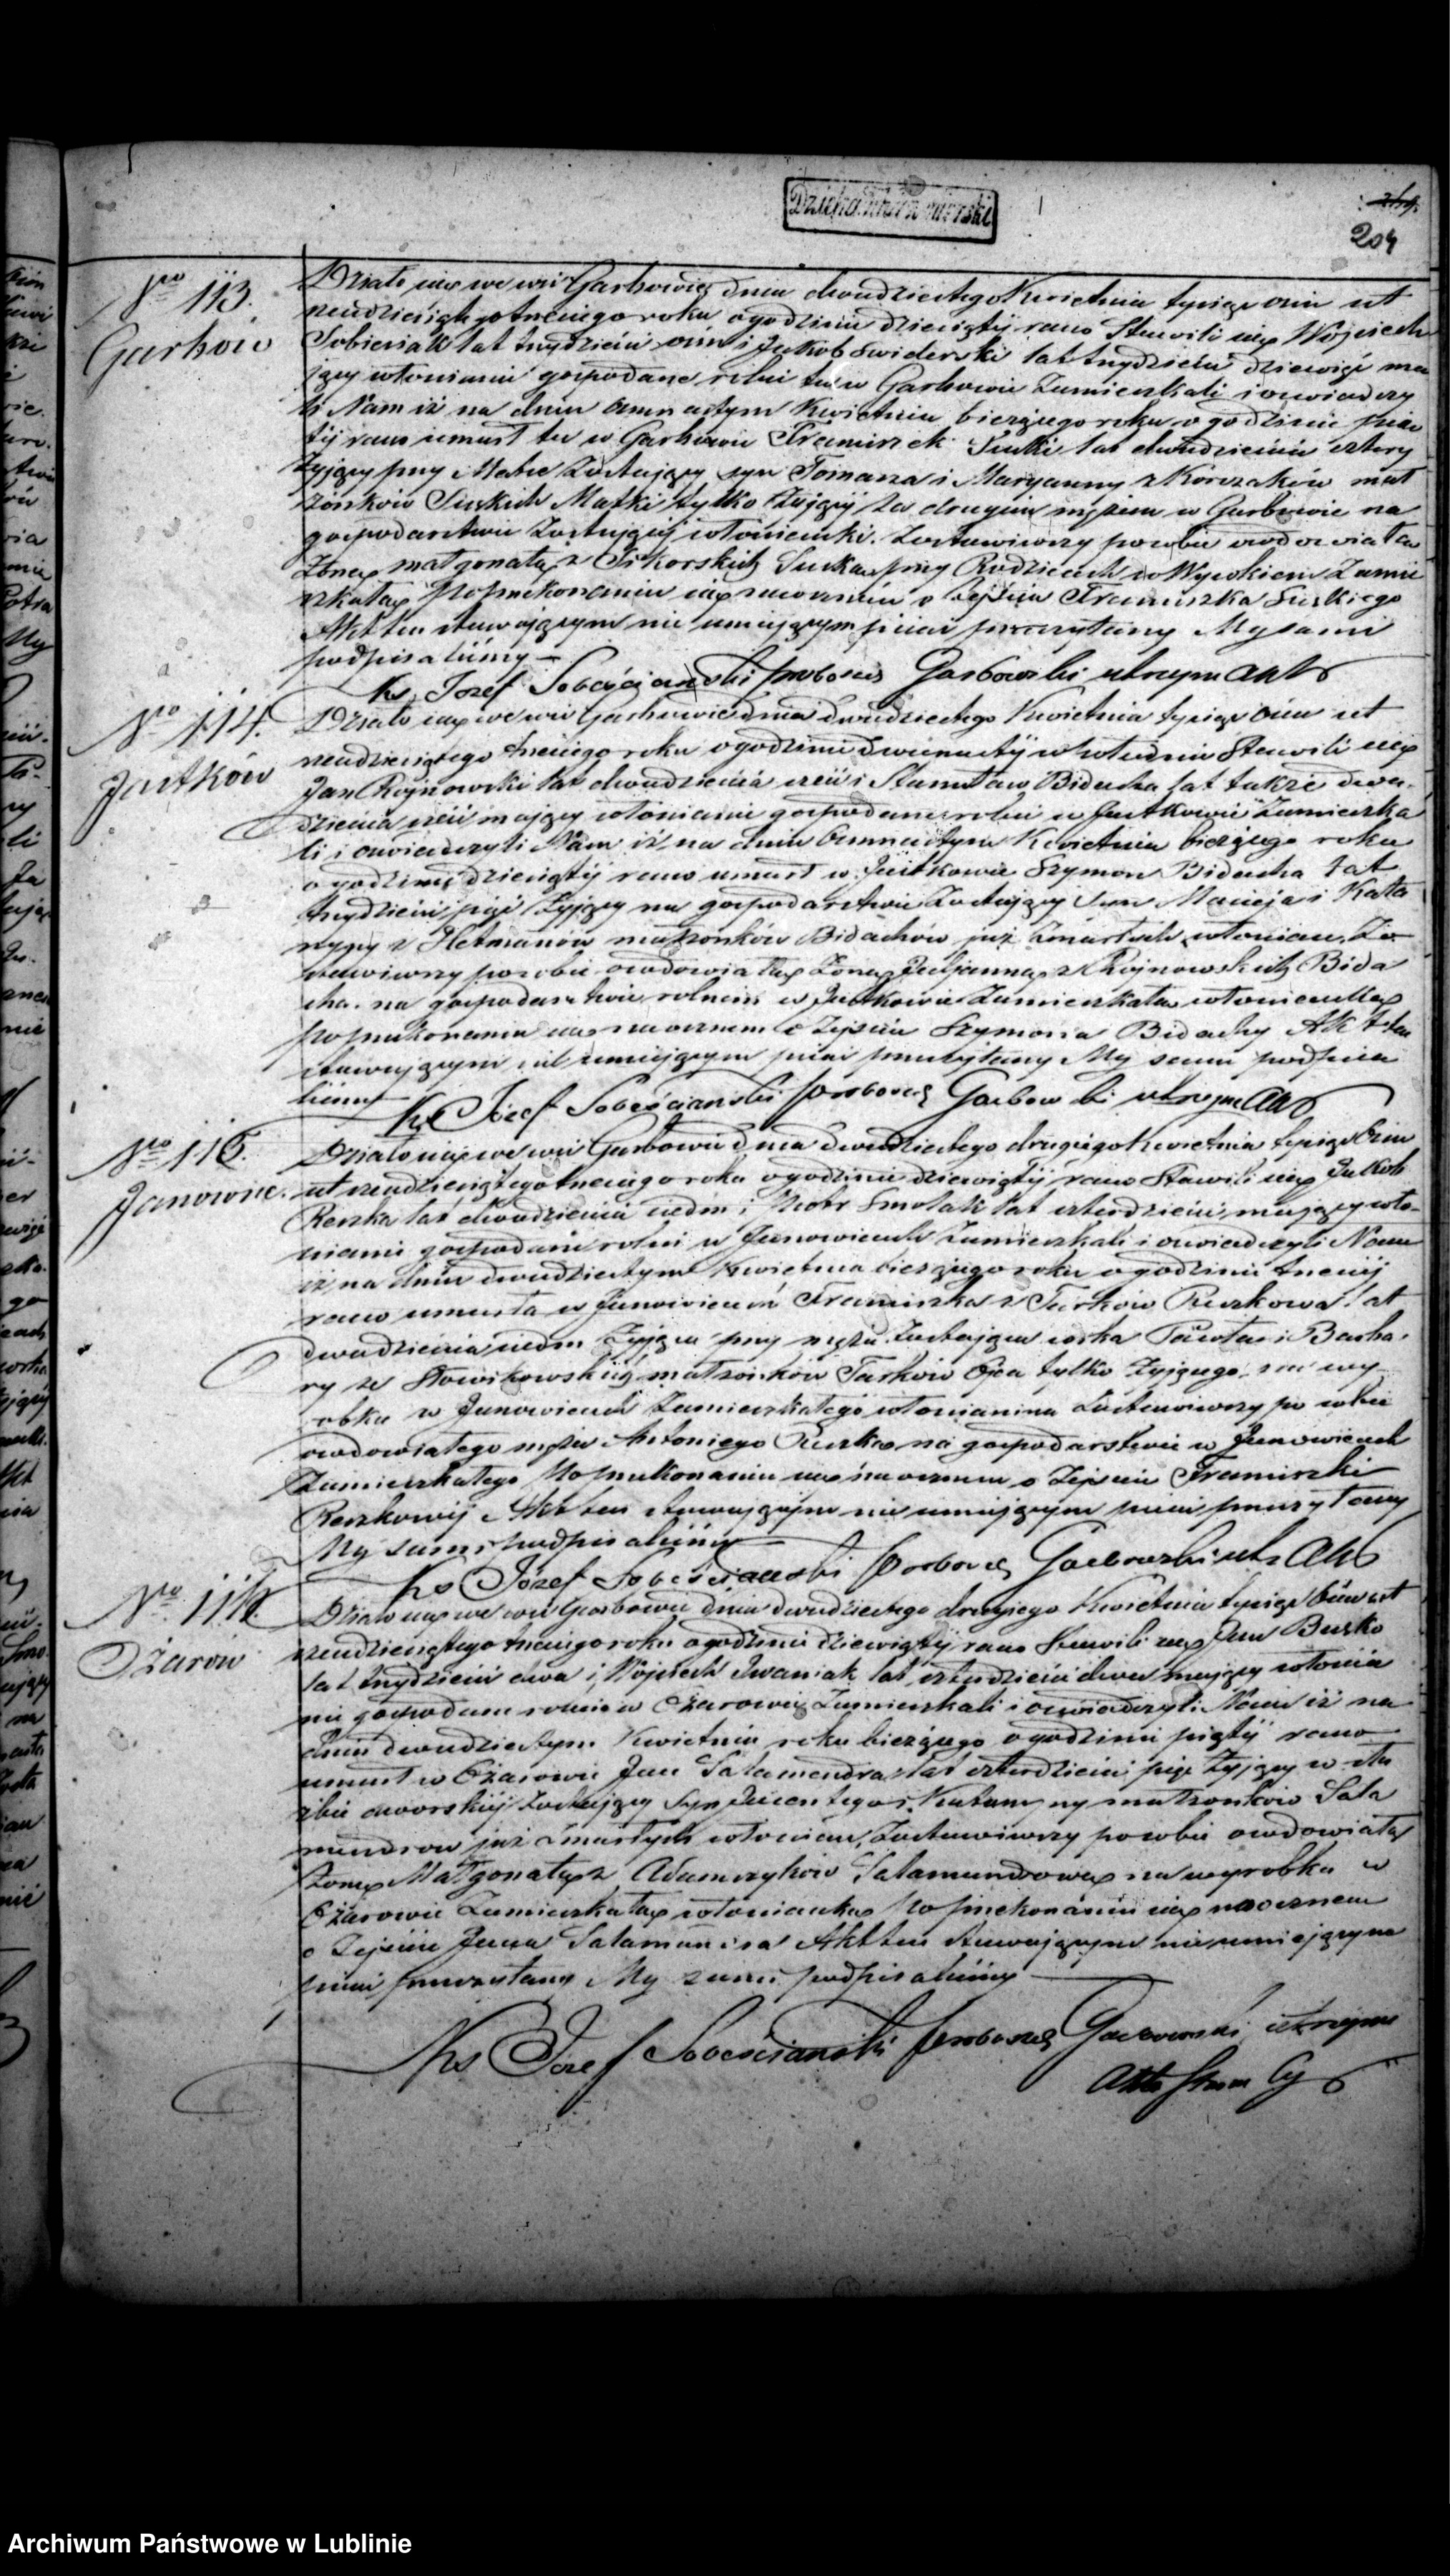 204
Nro 113.
Garbów
Działo się we wsi Garbowie dnia dwudziestego Kwietnia tysiąc ośm set
sześćdziesiątego trzeciego roku o godzinie dziesiątéj rano Stawili się Wojciech
Sobiesiak lat trzydzieści ośm i Jakob Swiderski lat trzydzieści dziewięć ma
jący włościanie gospodarze rolni tu w Garbowie Zamieszkali i oświadczy
li Nam iż na dniu Osmnastym Kwietnia bieżącego roku o godzinie
téj rano umarł tu w Garbowie Franciszek Suski lat dwadzieścia cztery
żyjący przy Matce Zostający syn Tomasza i Maryanny z Korczaków mał
żonków Suskich Matki tylko żyjącéj za drugim mężem w Garbowie na
gospodarstwie Zostającéj włościanki. Zostawiwszy po sobie owdowiałą
Żonę Małgorzatę z Sikorskich Suską przy Rodzicach w Wysokiem Zamie
szkałą Po przekonaniu się naocznie o Zejściu Franciszka Suskiego
Akt ten stawającym nie umiejącym pisać przeczytany My sami
podpisaliśmy
Ks. Jozef Sobeścianski proboszcz Garbowski utrzym Akta
Nro 114.
Jastków
Działo się we wsi Garbowie dnia dwudziestego Kwietnia tysiąc ośm set
sześdziesiątego trzeciego roku o godzinie dwunastéj w południe Stawili się
Jan Rojnowski lat dwadzieścia sześć i Stanisław Biducha lat także dwa
dzieścia sześć mający włościanie gospodarze rolni w Jastkowie Zamieszka
li i oświadczyli Nam iż na dniu Osmnastym Kwietnia bieżącego roku
o godzinie dziesiątéj rano umarł w Jastkowie Szymon Biducha lat
trzydzieści pięć żyjący na gospodarstwie Zostający Syn Macieja i Kata
rzyny z Hetmanów małżonków Biduchów już Zmarłych włościan. Zo
stawiwszy po sobie owdowiałą Żonę Juljannę z Rojnowskich Bidu
cha. na gospodarstwie rolnem w Jastkowie Zamieszkałą włościankę
Po przekonaniu się naocznem o Zejściu Szymona Biduchy Akt ten
stawającym nie umiejącym pisać przeczytany My sami podpisa
liśmy
Ks Józef Sobeściański proboszcz Garbowski utrzym Akta
Nro 115.
Janowice.
Działo się we wsi Garbowie dnia dwudziestego drugiego Kwietnia tysiąc Ośm
set sześdziesiątego trzeciego roku o godzinie dziewiątéj rano Stawili się Jakob
Reszka lat dwadzieścia siedm i Piotr Smolak lat czterdzieści mający wło-
ścianie gospodarze rolni w Janowicach Zamieszkali i oświadczyli Nam
iż na dniu dwudziestym Kwietnia bieżącego roku o godzinie trzeciéj
rano umarła w Janowicach Franciszka z Turków Reszkowa lat
dwadzieścia siedm żyjąca przy mężu Zostająca córka Pawła i Barba-
ry ze Słowikowskich małżonków Turków Ojca tylko żyjącego. na wy
robku w Janowicach Zamieszkałego włościanina Zostawiwszy po sobie
owdowiałego męża Antoniego Reszkę na gospodarstwie w Janowicach
Zamieszkałego Po przekonaniu się naocznem o Zejściu Franciszki
Reszkowéj Akt ten stawającym nie umiejącym pisać przeczytany
My sami podpisaliśmy
Ks Józef Sobeściański Proboszcz Garbowski utrz Akta
Nro 116.
Ożarów
Działo się we wsi Garbowie dnia dwudziestego drugiego Kwietnia tysiąc Ośm set
sześdziesiątego trzeciego roku o godzinie dziewiątéj rano Stawili się Jan Busko
lat trzydzieści dwa i Wojciech Iwaniak lat czterdzieści dwa mający włościa
nie gospodarze rolni w Ożarowie Zamieszkali i oświadczyli Nam iż na
dniu dwudziestym Kwietnia roku bieżącego o godzinie piątéj rano
umarł w Ożarowie Jan Salamandra lat czterdzieści pięć żyjący w słu
żbie dworskiéj Zostający Syn Wincentego i Katarzyny małżonków Sala
mandrów już Zmarłych włościan, Zostawiwszy po sobie owdowiałą
Żonę Małgorzatę z Adamczyków Salamandrową na wyrobku w
Ożarowie Zamieszkałą włościankę Po przekonaniu się naocznem
o Zejściu Jana Salamandra Akt ten stawającym nie umiejącym
pisać przeczytany My sami podpisaliśmy
Ks Józef Sobeściański Proboszcz Garbowski utrzym
Akta Stanu Cy
Archiwum Państwowe w Lublinie